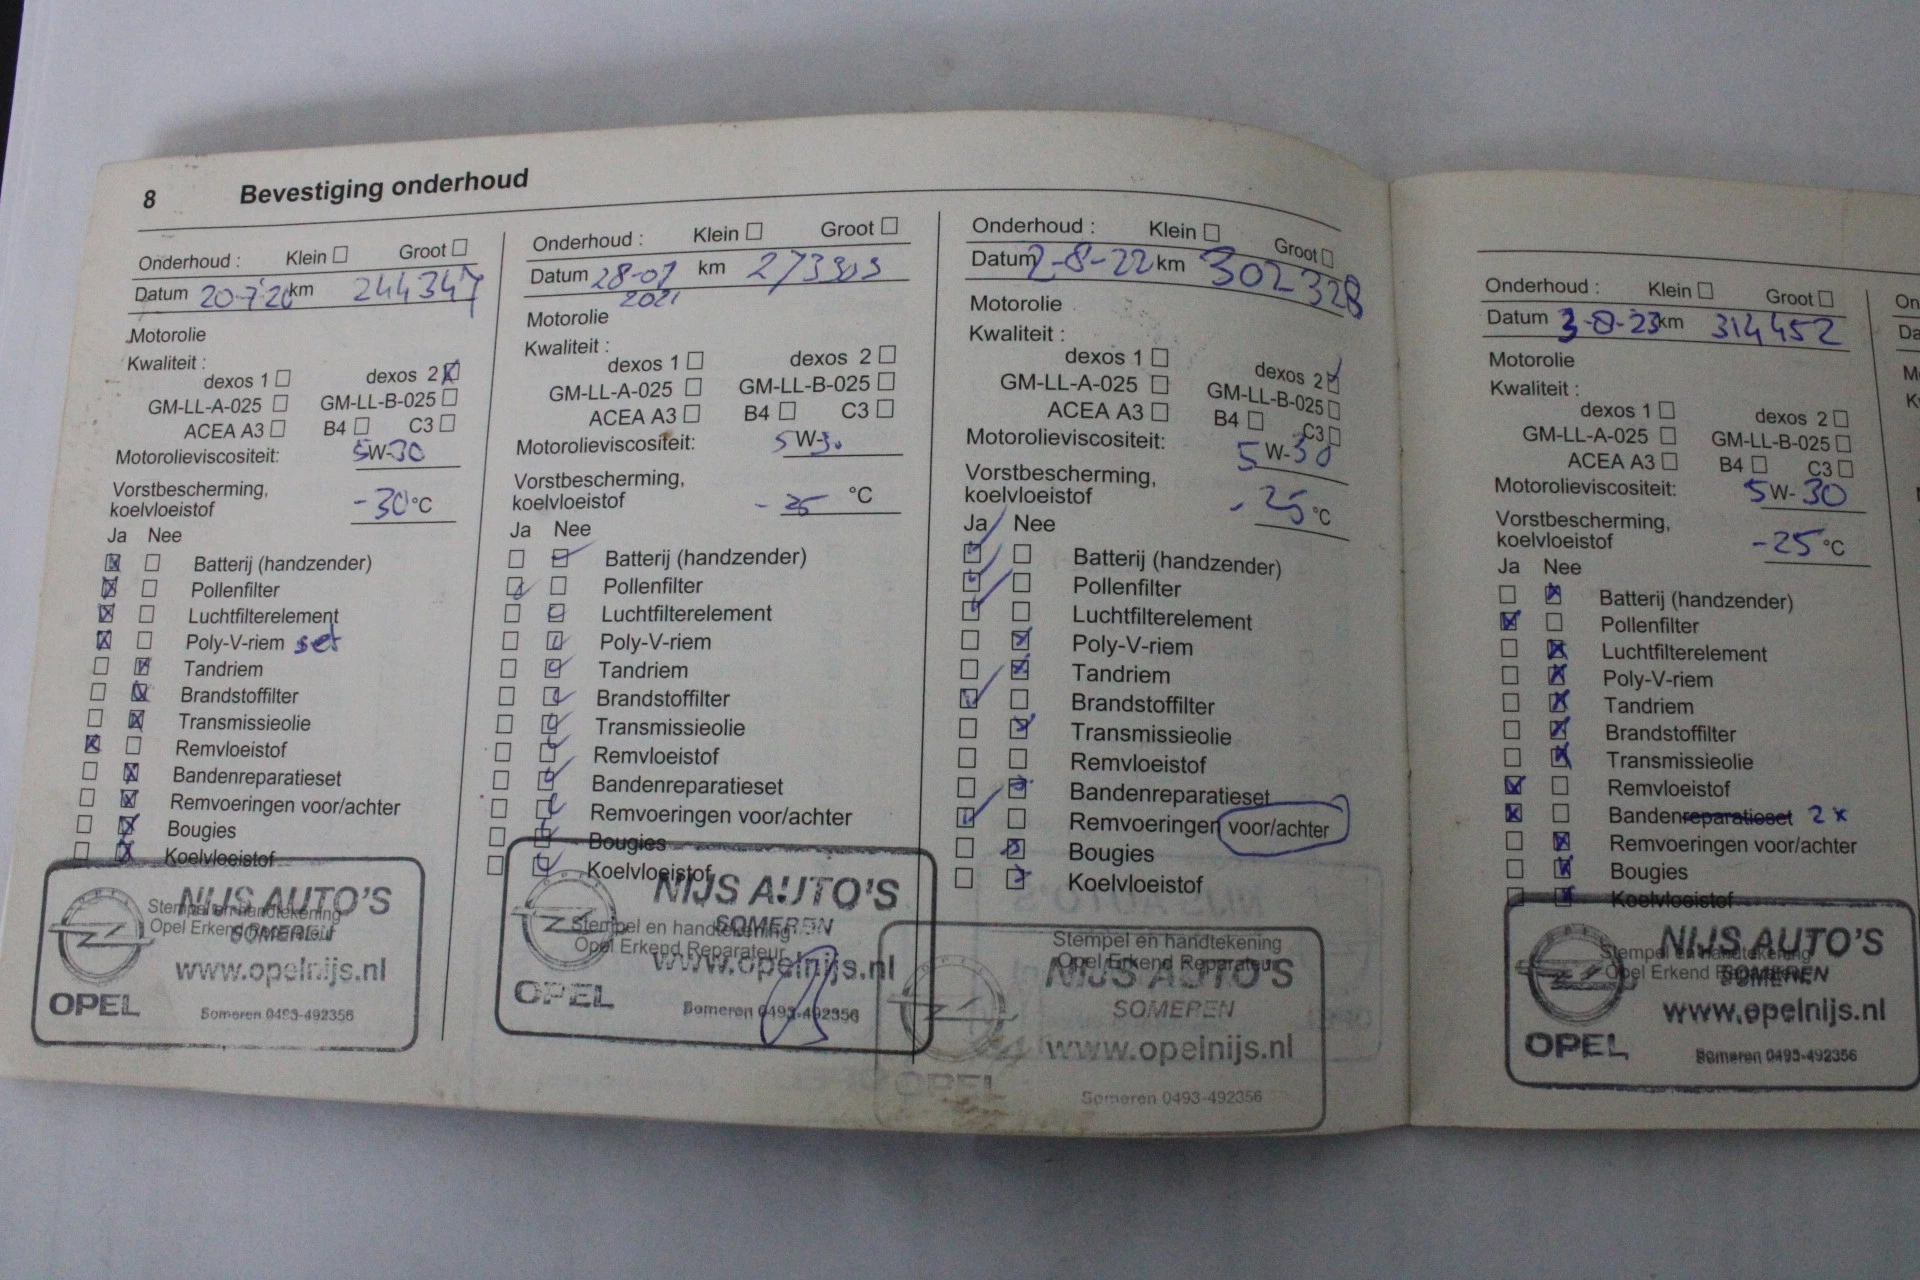 8 Bevestiging onderhoud
Onderhoud : Klein Groot
Datum 20-7-20 km 244347
Motorolie
Kwaliteit :
dexos 1 dexos 2
GM-LL-A-025 GM-LL-B-025
ACEA A3 B4 C3
Motorolieviscositeit: 5W-30
Vorstbescherming,
koelvloeistof -30°C
Ja Nee
Batterij (handzender)
Pollenfilter
Luchtfilterelement
Poly-V-riem set
Tandriem
Brandstoffilter
Transmissieolie
Remvloeistof
Bandenreparatieset
Remvoeringen voor/achter
Bougies
Koelvloeistof
Stempel en handtekening
Opel Erkend Reparateur
NIJS AUTO'S
SOMEREN
www.opelnijs.nl
OPEL
Someren 0493-492356
Onderhoud : Klein Groot
Datum 28-07 km
2021
Motorolie
Kwaliteit :
dexos 1 dexos 2
GM-LL-A-025 GM-LL-B-025
ACEA A3 B4 C3
Motorolieviscositeit: 5W-30
Vorstbescherming,
koelvloeistof -25 °C
Ja Nee
Batterij (handzender)
Pollenfilter
Luchtfilterelement
Poly-V-riem
Tandriem
Brandstoffilter
Transmissieolie
Remvloeistof
Bandenreparatieset
Remvoeringen voor/achter
Bougies
Koelvloeistof
Stempel en handtekening
Opel Erkend Reparateur
NIJS AUTO'S
SOMEREN
www.opelnijs.nl
OPEL
Someren 0493-492356
Onderhoud : Klein Groot
Datum 2-8-22 km 302328
Motorolie
Kwaliteit :
dexos 1 dexos 2
GM-LL-A-025 GM-LL-B-025
ACEA A3 B4 C3
Motorolieviscositeit: 5W-30
Vorstbescherming,
koelvloeistof -25 °C
Ja Nee
Batterij (handzender)
Pollenfilter
Luchtfilterelement
Poly-V-riem
Tandriem
Brandstoffilter
Transmissieolie
Remvloeistof
Bandenreparatieset
Remvoeringen voor/achter
Bougies
Koelvloeistof
Stempel en handtekening
Opel Erkend Reparateur
NIJS AUTO'S
SOMEREN
www.opelnijs.nl
OPEL
Someren 0493-492356
Onderhoud : Klein Groot
Datum 3-8-23 km 314452
Motorolie
Kwaliteit :
dexos 1 dexos 2
GM-LL-A-025 GM-LL-B-025
ACEA A3 B4 C3
Motorolieviscositeit: 5W-30
Vorstbescherming,
koelvloeistof -25°C
Ja Nee
Batterij (handzender)
Pollenfilter
Luchtfilterelement
Poly-V-riem
Tandriem
Brandstoffilter
Transmissieolie
Remvloeistof
Bandenreparatieset 2x
Remvoeringen voor/achter
Bougies
Koelvloeistof
Stempel en handtekening
Opel Erkend Reparateur
NIJS AUTO'S
SOMEREN
www.opelnijs.nl
OPEL
Someren 0493-492356